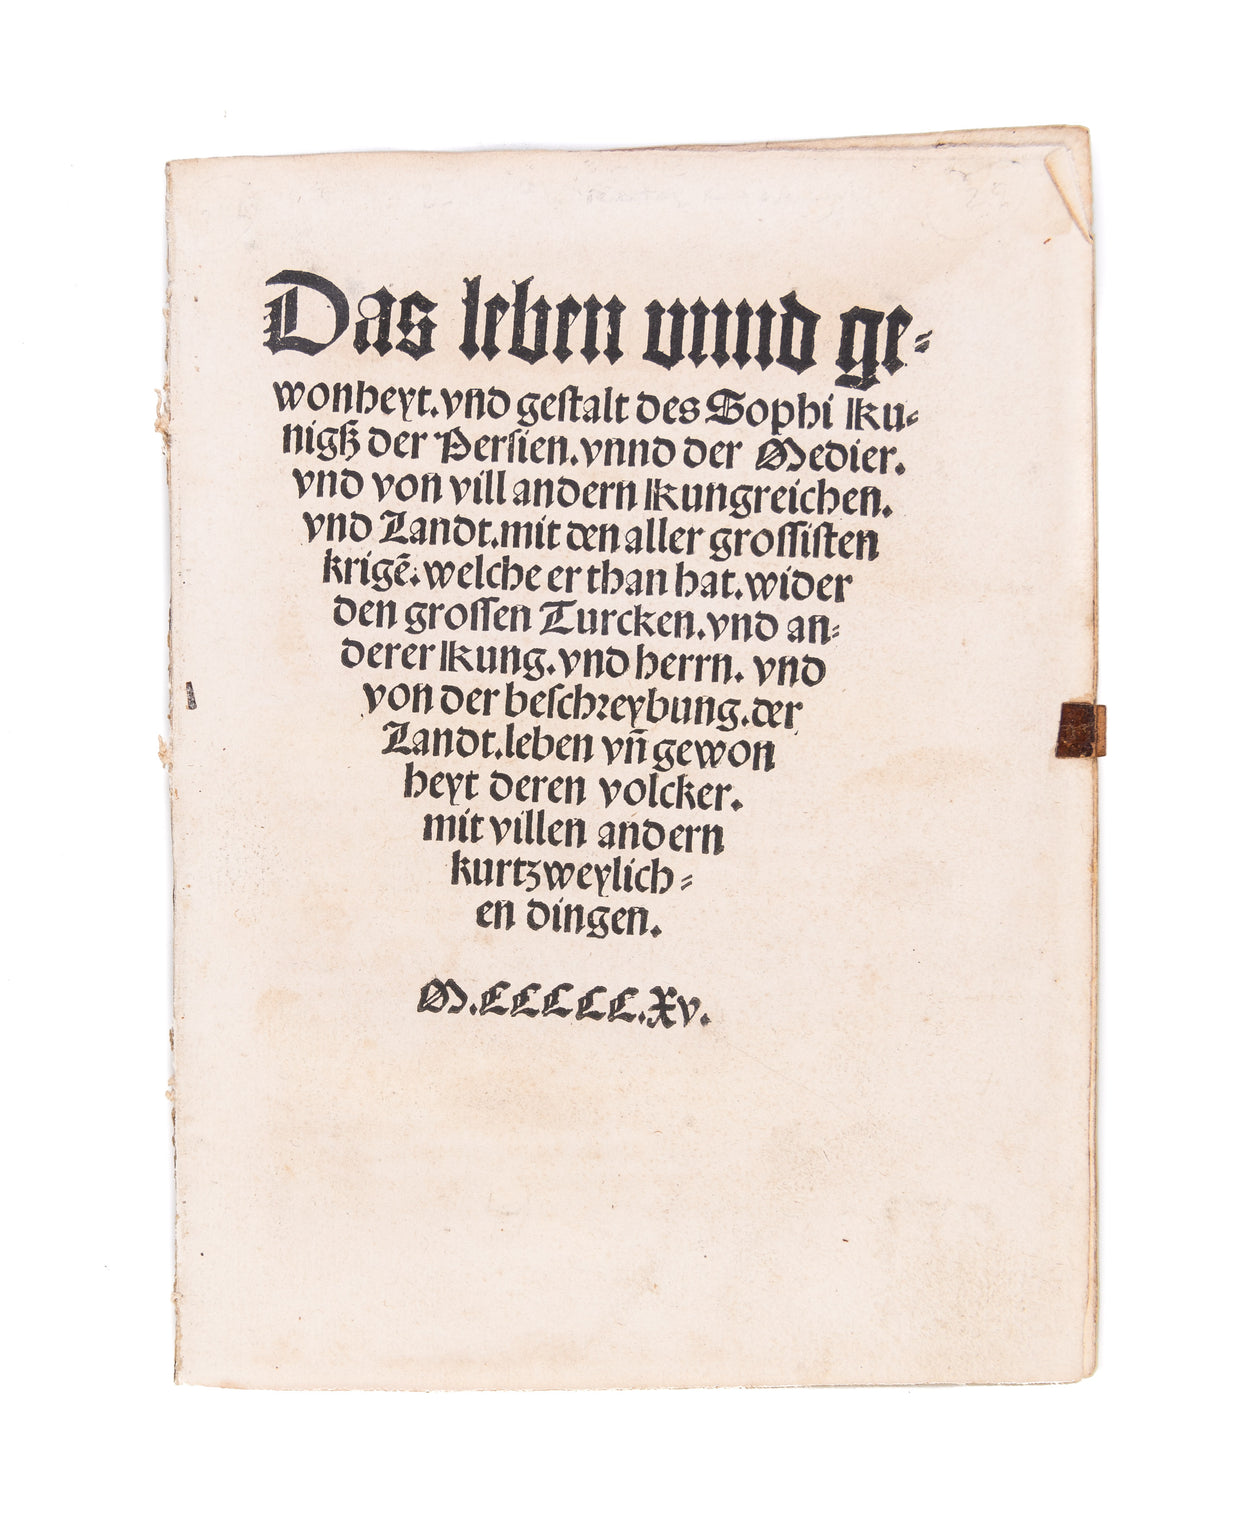 Das leben vnnd ge⸗
wonheyt.vñd gestalt des Sophi Ku⸗
nigß der Persien.vnnd der Medier.
vnd von vill andern Kungreichen.
vnd Landt.mit den aller grossisten
krigẽ.welche er than hat.wider
den grossen Turcken.vnd an⸗
derer Kung.vnd herrn. vnd
von der beschreybung.der
Landt.leben vñ gewon
heyt deren volcker.
mit villen andern
kurtzweylich⸗
en dingen.
M.CCCCC.xv.